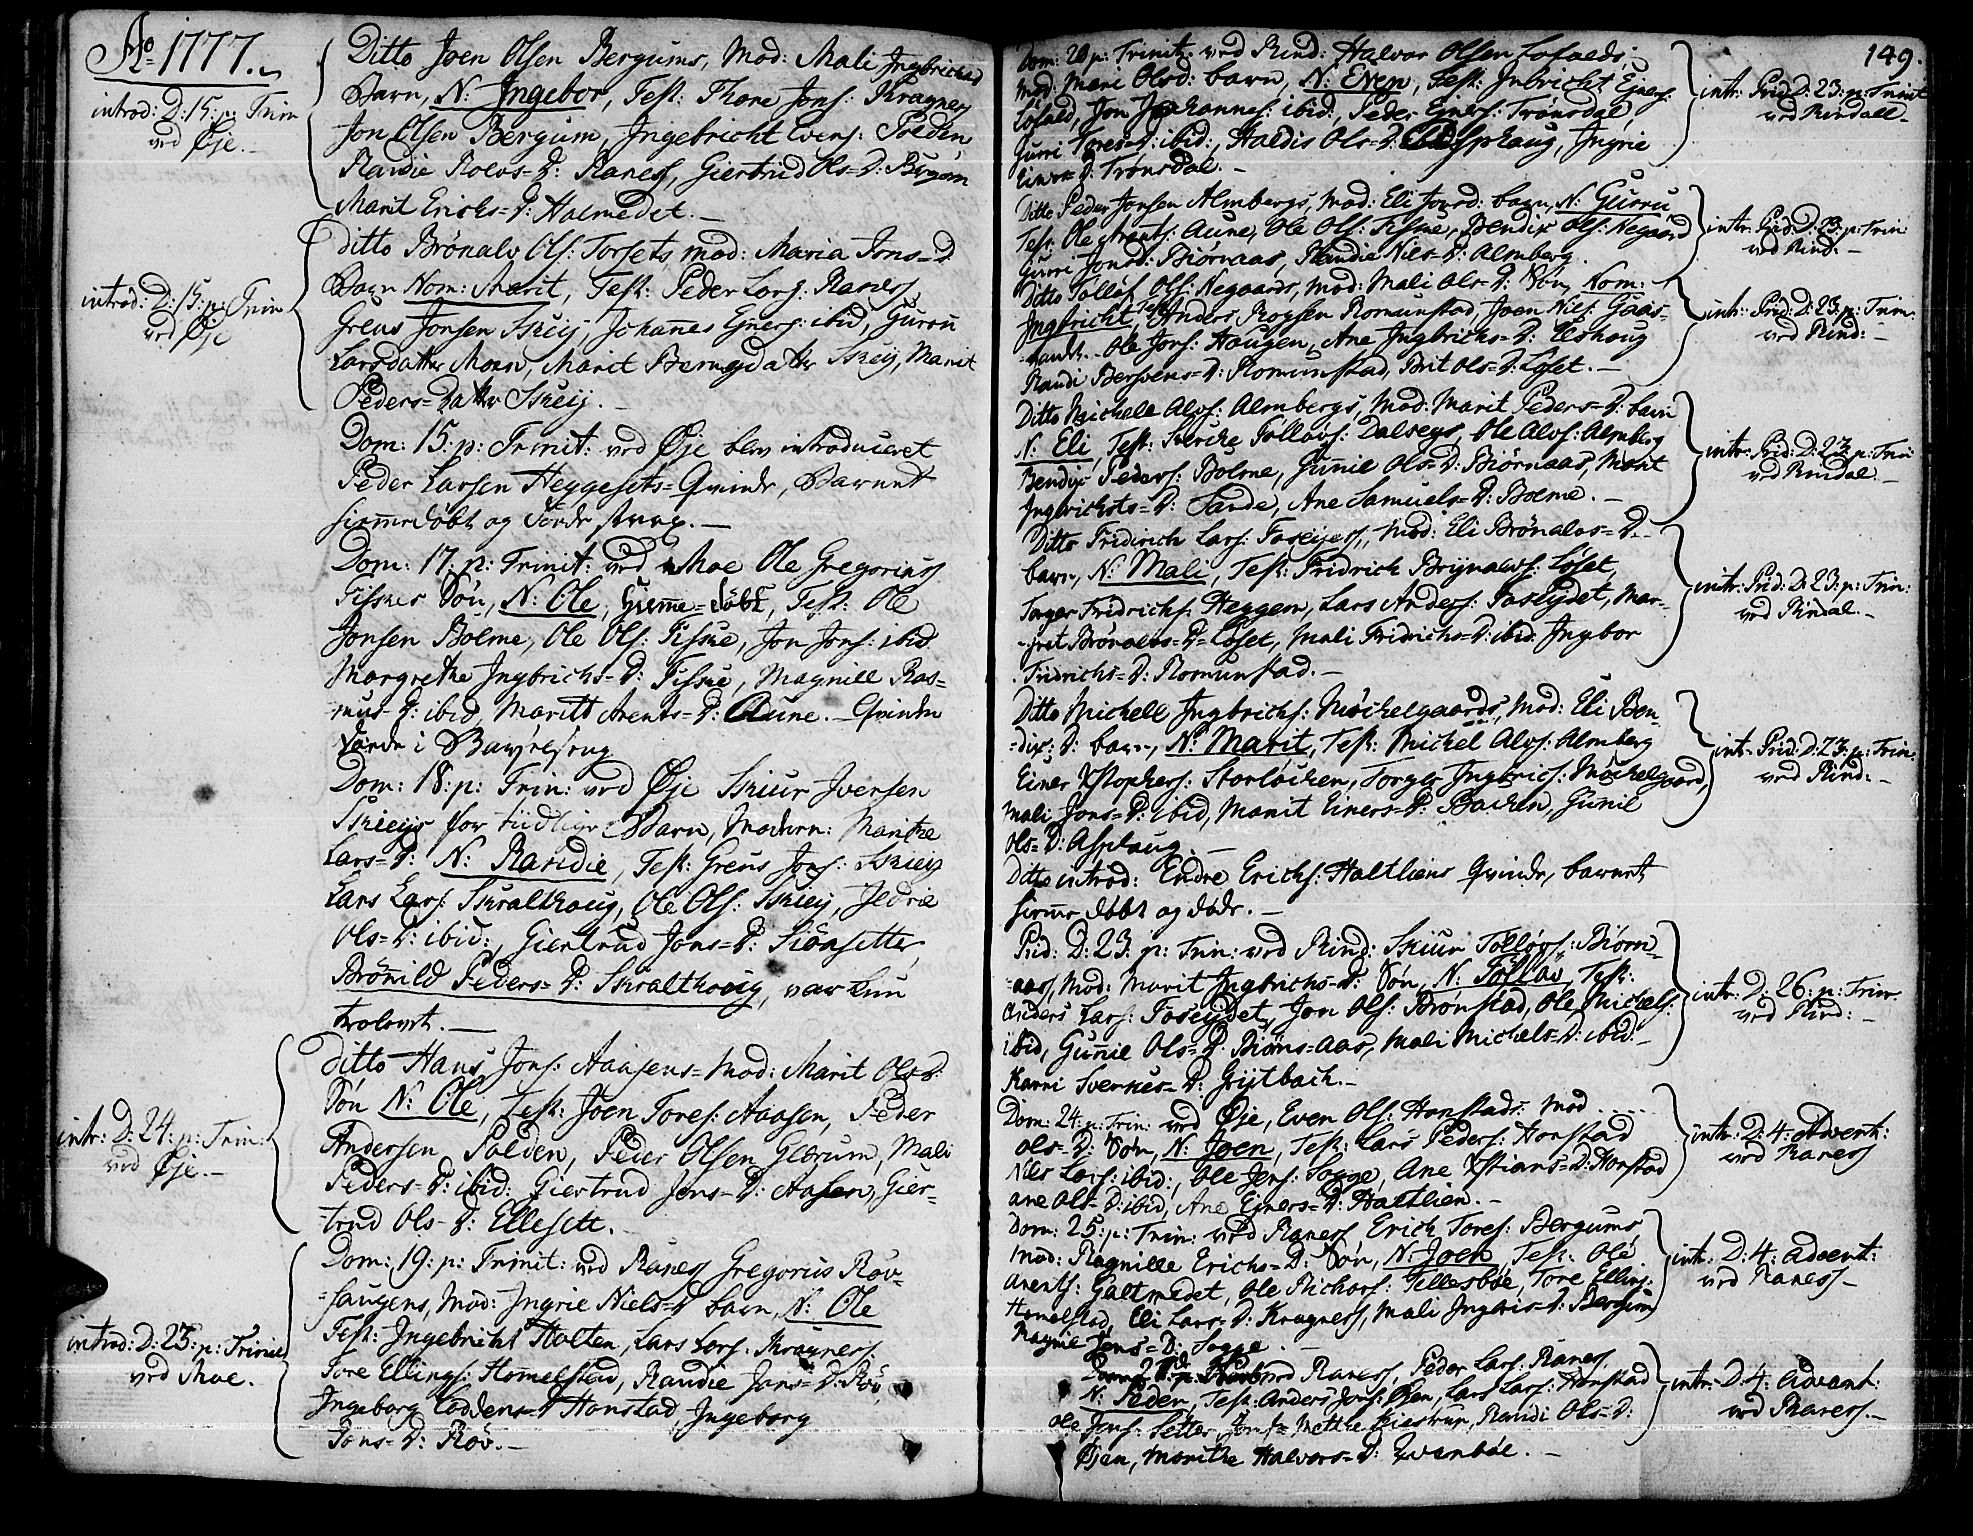 Ao 1777.
introd: D: 15: p: Trin
ved Øje.
Ditto Joen Olsen Bergums, Mod: Mali Ingbrichtsd
Barn, N: Ingebor, Test: Thore Jons: Kragness
Jon Olsen Bergum, Ingebricht Evens: Polden
Randie Roels=D: Raness, Giertrud Ols=D: Bergum
Marit Erichs=D: Halmedet.
introd: D: 15: p: Trin
ved Øje
ditto Brönalv Ols: Torsets, mod: Maria Jons=D
Barn Nom: Marit, Test: Peder Lars: Raness
Greus Jonsen Skieij, Johanes Ejners: ibid, Gurru
Larsdatter Moen, Marit Berngdatter Skeij, Marit
Peders=Datter Skeij.
Dom: 15: p: Trinit: ved Øje blev introduceret
Peder Larsen Heggesets=Qvinde, Barnet
hiemedøbt og døde strax.
Dom: 17: p: Trinit: ved Moe Ole Gregoriuss
Fiskes Søn, N: Ole, hieme=døbt, Test: Ole
Jonsen Bolme, Ole Ols: Fiske, Jon Jons: ibid
Margrethe Ingbrichs=D: Fiske, Magnill Ras=
mus=D: ibid, Maritt Arents=D: Aune. Qvinden
døde i Barselseng
Dom: 18: p: Trin: ved Øje Skiur Iversen
Skieijs for tiidlige Barn, Moderen: Marithe
Lars=D: N: Randie, Test: Greus Jons: Skieij
Lars Lars: Skralthoug, Ole Ols: Skieij, Ildrie
Ols=D: ibid:, Giertrud Jons=D: Sionsetter
Brönild Peders=D: Skralthoug, var kun
trolovet.
intr: D: 24: p: Trin:
ved Øje.
ditto Hans Jons: Aasens=Mod: Marit Olsd:
Søn N: Ole, Test: Joen Tores: Aasen, Peder
Andersen Polden, Peder Olsen Glærum, Mali
Peders=D: ibid: Giertrud Jens=D: Aasen, Gier=
=trud Ols=D: Ellesett.
introd: D: 23: p: Trinit
ved Moe.
Dom: 19: p: Trinit: ved Raness Gregorius Röv=
=haugens, Mod: Ingrie Niels=D barn, N: Ole
Test: Ingebricht Holten, Lars Lars: Kragness
Tore Ellings: Homelstad, Randie Jons=D: Röv,
Ingeborg Loddens=D Honstad, Ingeborg
Jons=D: Röv.
149.
Dom: 20 p: Trinit: ved Rind: Halvor Olsen Lofalds;
Mod: Mari Olsd: barn, N: Even, Test: Inbricht Ejners:
Løfald, Jon Johannes: ibid:, Peder Ejners: Trønsdal,
Gurri Tores=D: ibid:, Haldis Ols=D: Asplaug, Ingrie
Einers=D: Trønsdal.
intr: Prid: D: 23: p: Trinit
ved Rindall
Ditto Peder Jonsen Almbergs, Mod: Eli Jonsd: barn, N: Gurru,
Test: Ole Arents: Aune, Ole Ols: Fiske, Bendix Ols: Negaard
Gurri Jonsd: Biörnaas, Randie Niels=D: Almberg.
intr: Prid: D: 23: p: Trin:
ved Rind:
Ditto Tolløf Ols: Negaards, Mod: Mali Ols=D: Søn, Nom:
Ingbricht, Test: Anders Roysen Romundstad, Joen Niels: Gaas=
Ole Jons: Haugen, Ane Ingbrichs=D: Elshoug
Randi Berdvens=D: Romunstad, Brit Ols=D: Løset.
intr: Prid: D: 23: p: Trin:
ved Rind:
Ditto Michell Alvs: Almbergs, Mod: Marit Peders=D: barn
N: Eli, Test: Sverche Tölløvs: Dalsegs, Ole Alvs: Almberg
Bendix Peders: Bolme, Gunil Ols=D: Biörnaas, Marit
Ingbrichsts=D: Sande, Ane Samuels=D: Bolme.
intr: Prid: D: 23: p: Trin:
ved Rindal.
Ditto Fridrich Lars: Foseijes, Mod: Eli Brönalvs=D.
barn, N: Mali, Test: Fridrich Brynalvs: Løset,
Tager Fridrichs: Heggem, Lars Anders: Foslydet, Mar=
=gret Brönalvs=D= Løset, Mali Fridrichs=D: ibid: Ingbor
Fridrichs=D: Romunstad.
intr: Prid: D: 23: p: Trin:
ved Rindal.
Ditto Michell Ingbrichs: Møchelgaards, Mod: Eli Ben=
=dix: D: barn, N: Marit, Test: Michel Alvs: Almberg
Einer Xstophers: Storløchen, Torger Ingbrics: Møchelgaard,
Mali Jons=D: ibid, Marit Einers=D: Bachen, Gunil
Ols=D: Asplaug.
intr: Prid: D: 23: p: Trin:
ved Rind:
Ditto introd: Endre Erichs: Haltliens Qvinde, barnet
hieme døbt og døde.
Prid: D: 23: p: Trin: ved Rind: Skiur Tølløvs: Biørn=
=aas, Mod: Marit Ingbrichs=D: Søn, N: Tølløv, Test:
Anders Lars: Foseijdet, Jon Ols: Brønstad, Ole Michels:
ibid, Gunil Ols=D: Biørns=aas, Mali Michels=D: ibid.
Karri Sverkes=D: Grytbach.
intr: D: 26: p: Trin:
ved Rind:
Dom: 24: p: Trin: ved Øje, Even Ols: Honstads: Mod ....
Ols=D: Søn, N: Joen, Test: Lars Peders: Honstad
Nils Lars: ibid:, Ole Jens: Sogge, Ane Xstians=D: Honstad
ane Ols=D: ibid, Ane Ejners=D: Haltlien.
intr: D: 4: Advent:
ved Raness
Dom: 25: p: Trin: ved Raness Erich Tores: Bergums,
Mod: Ragnille Erichs=D: Søn, N: Joen, Test: Ole
Arents: Galtmedet, Ole Richors: Tellesbøe, Tore Ellins:
Homelstad, Eli Lars=D: Kragness, Mali Ingbris=D: Bergum
Ragnil Jens=D: Sogge.
intr: D: 4: advent:
ved Raness
ved Raness, Peder Lars: Raness
N: Peder, Test: Anders Jons: Øjen, Lars Lars: Honstad
Ole Jons: Setter, Jomf= Methe Kiestrup, Randi Ols=D:
Øjen, Marithe Halvors=D: Evenbøe.
intr: D: 4: Advent:
ved Raness.